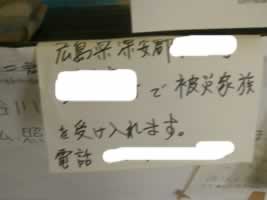 広島県深安郡
で被災家族
を受け入れます。
電話